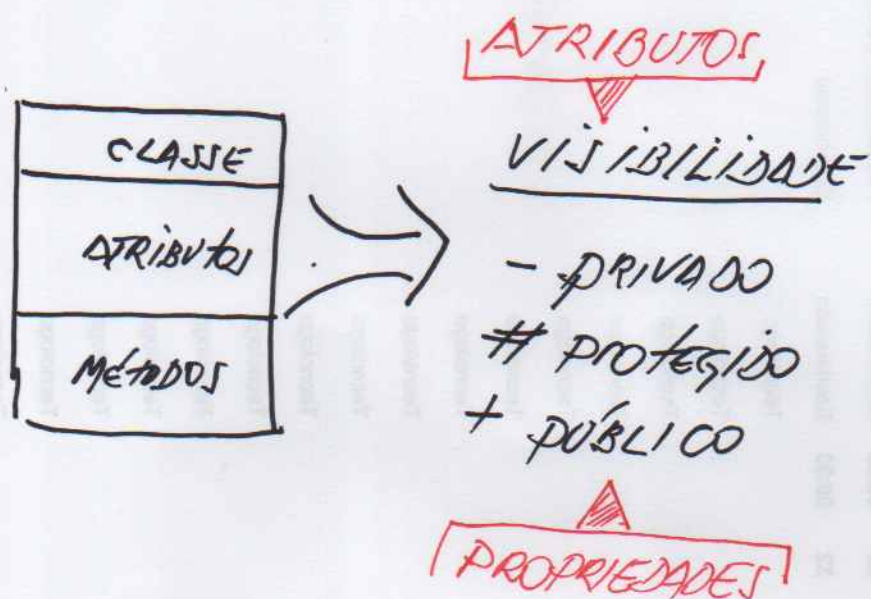 CLASSE
ATRIBUTOS
MÉTODOS
ATRIBUTOS
VISIBILIDADE
- PRIVADO
# PROTEGIDO
+ PÚBLICO
PROPRIEDADES